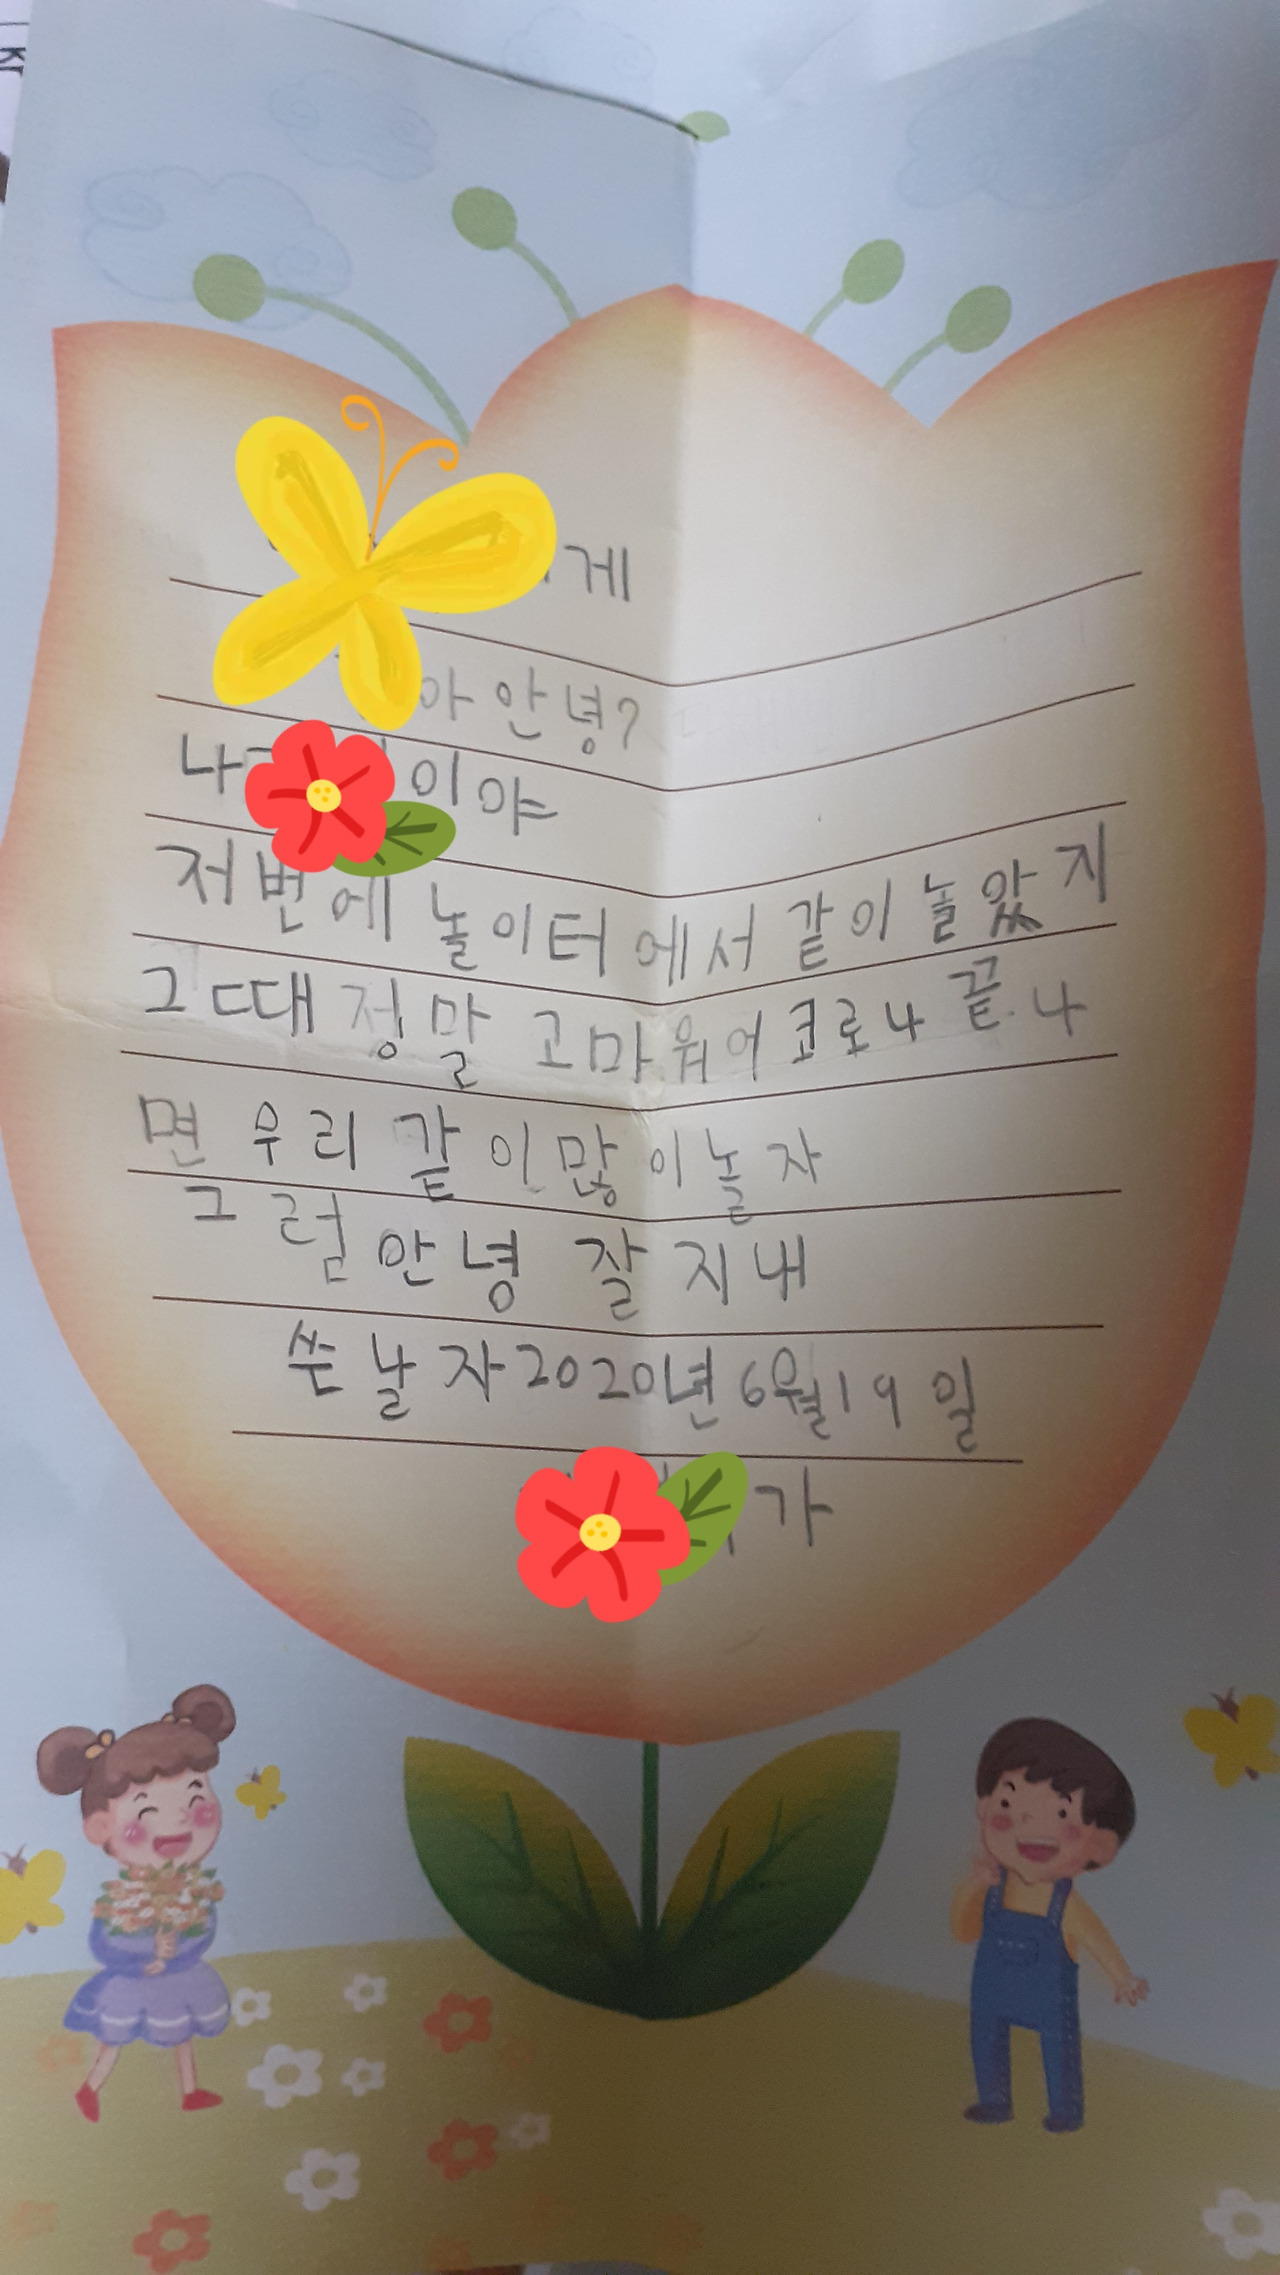 게
아 안녕?
나 이야
저번에 놀이터에서 같이 놀았지
그때 정말 고마워어 코로나 끝나
면 우리 같이 많이 놀자
그럼 안녕 잘 지내
쓴 날자 2020년 6월 19일
가